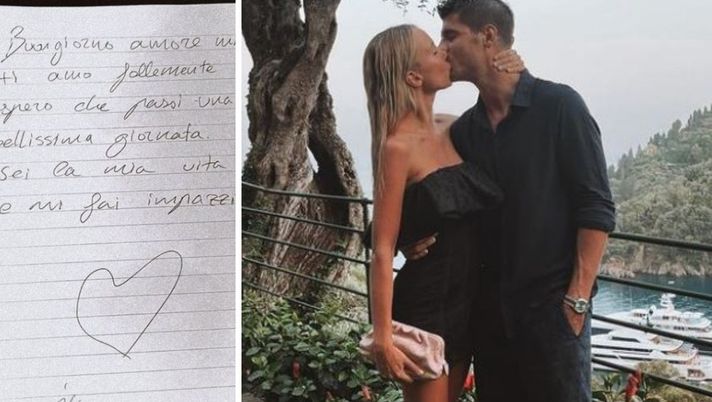 Buongiorno amore m
ti amo follemente
spero che passi una
bellissima giornata.
sei la mia vita
e mi fai impazzi